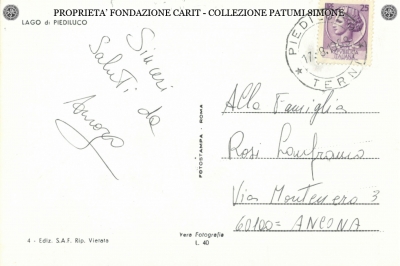 PROPRIETA' FONDAZIONE CARIT - COLLEZIONE PATUMI SIMONE
LAGO di PIEDILUCO
Sinceri
Saluti da
PIEDILUCO
TERNI
Alla Famiglia
Rosi Lanfranco
Via Montenero 3
60100 = ANCONA
FOTOSTAMPA - ROMA
4 - Ediz. S.A.F. Rip. Vietata
Vera Fotografia
L. 40